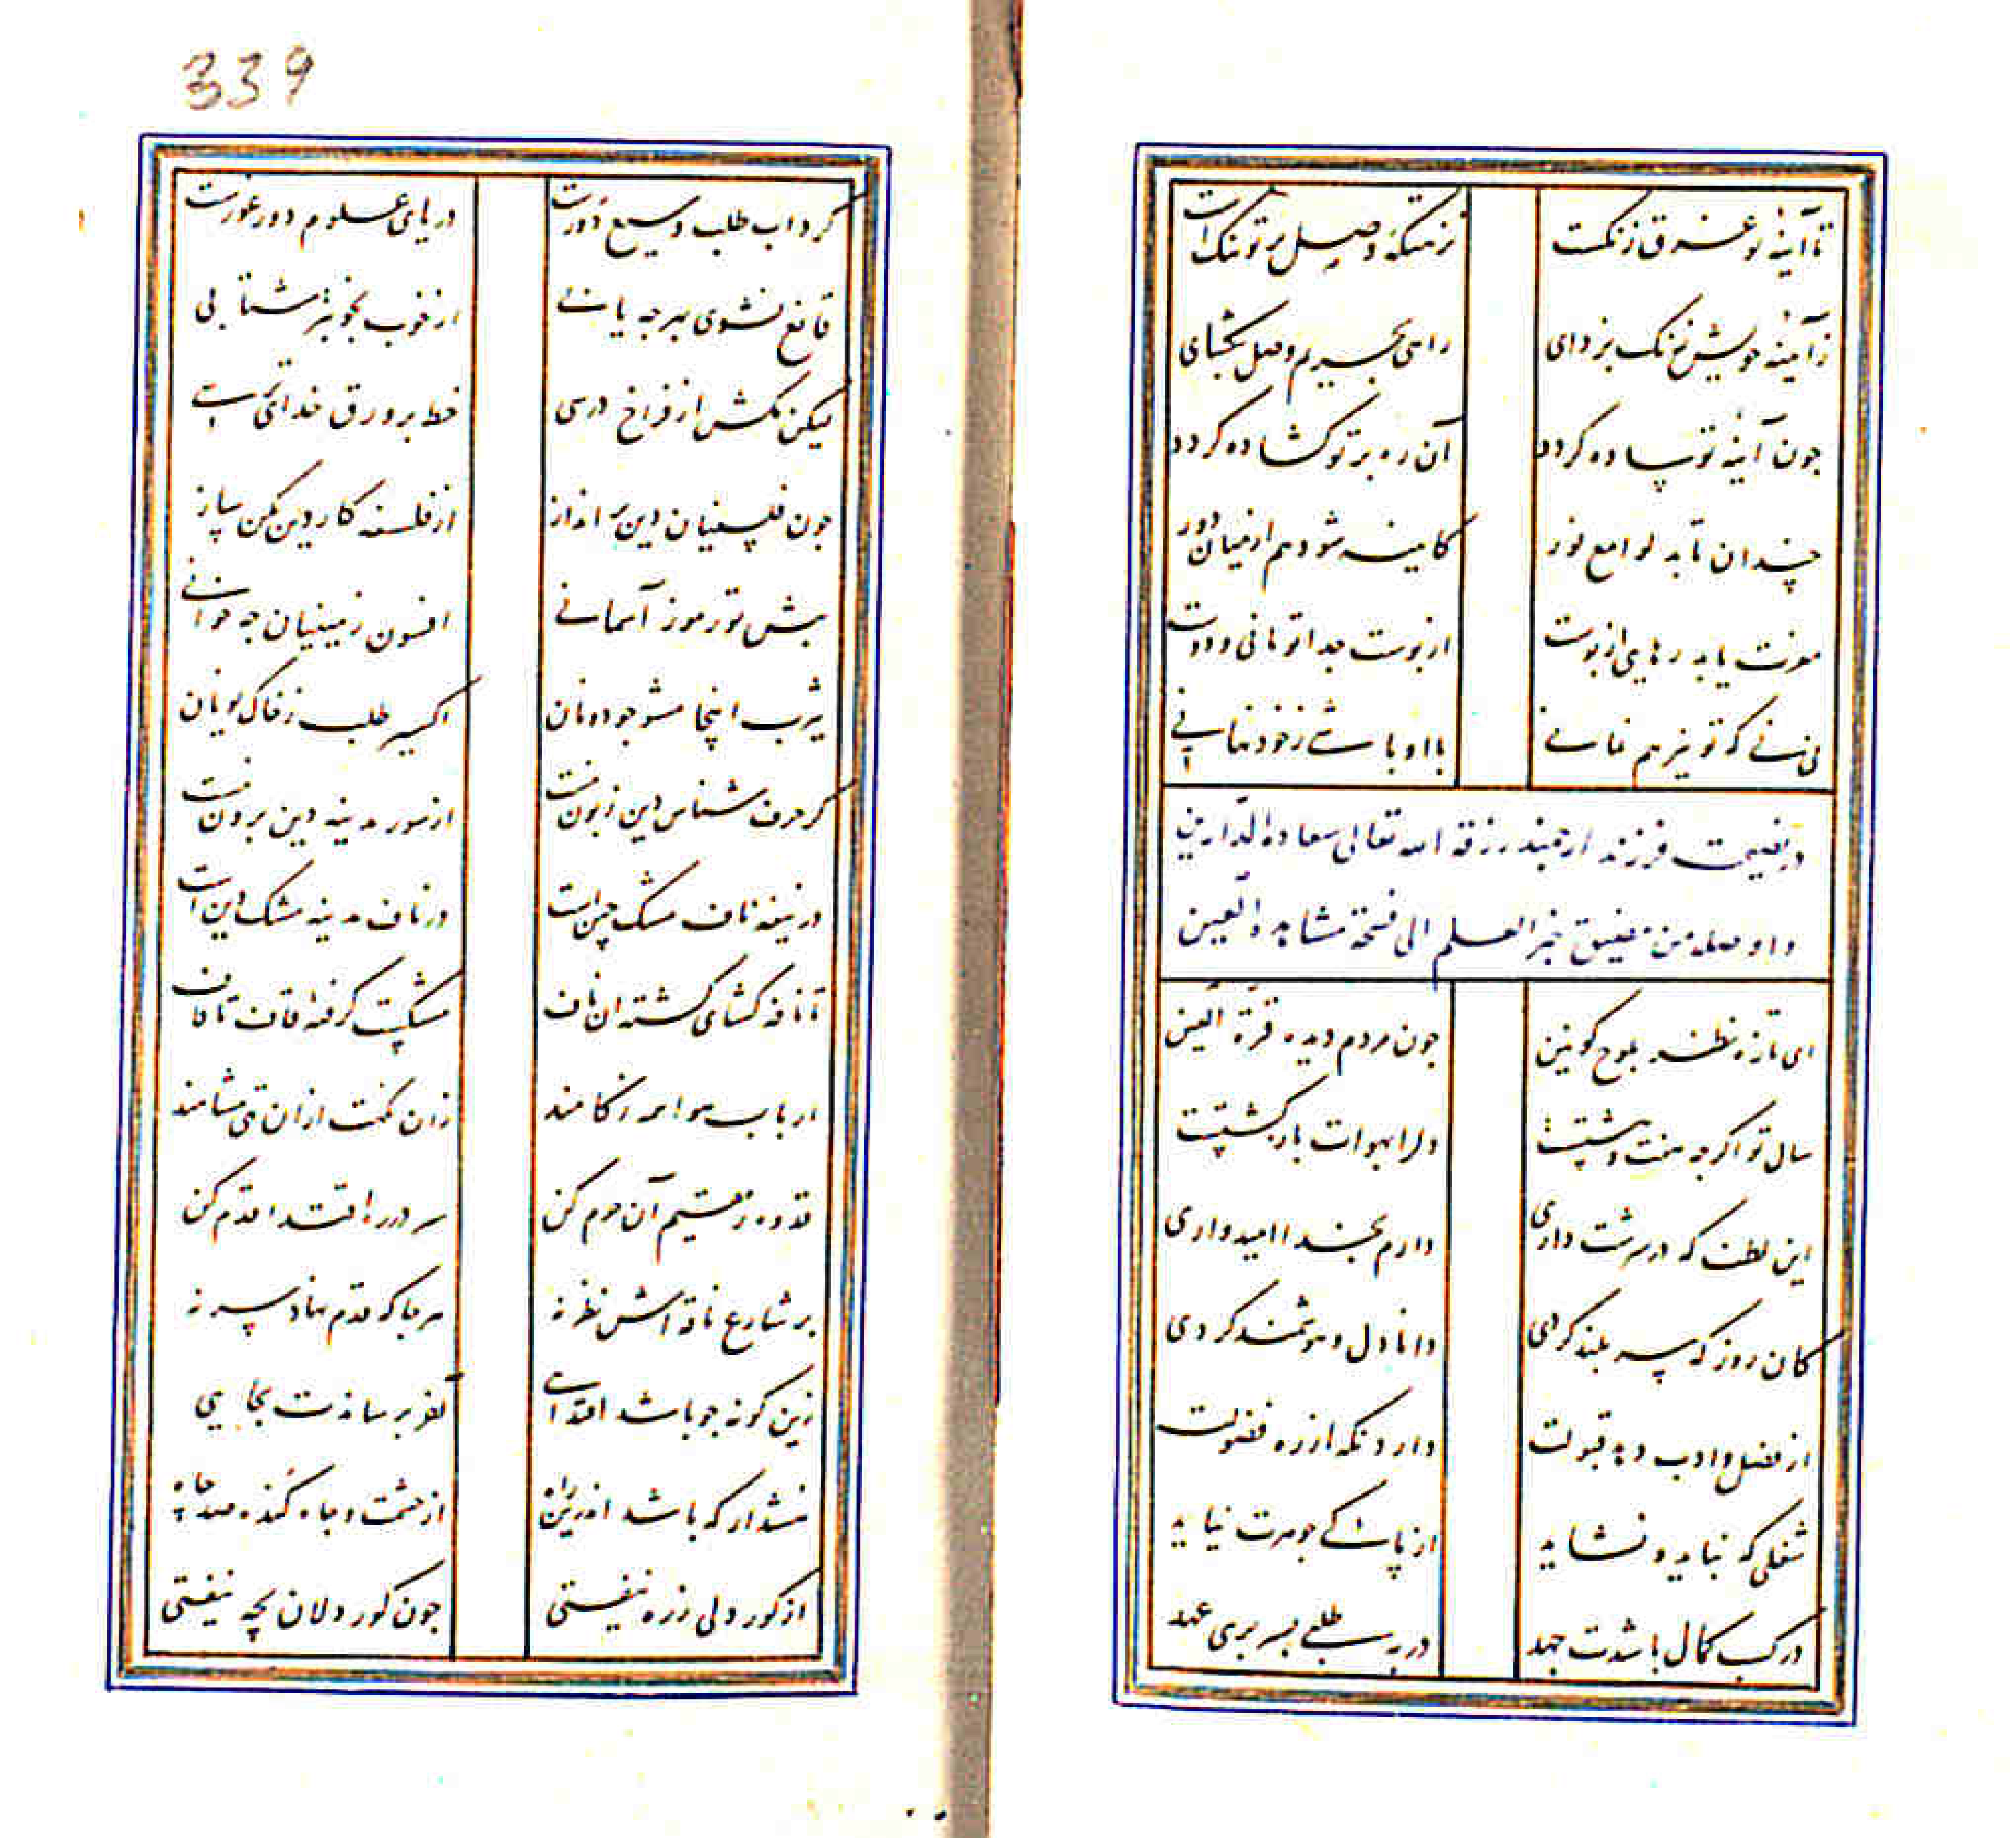 339
تا آینهٔ تو غرق زنگست زهتکه وصل بر تو تنک است
ز آینهٔ خویش زنک بزدای راهی بحریم وصل بکشای
جون آینهٔ تو ساده کردد آن ره بر تو کشاده کردد
چندان تابد لوامع نور کاینه شود هم از میان دور
معرفت یابد رهایی از پوست از پوست جدا تو مانی و دوست
نی نی که تو نیز هم نمانی با او باشی ز خود نهانی
در نصیحت فرزند ارجمند رزقه الله تعالی سعادة الدارین
و اوصله من مضیق خبر العلم الی فسحة مشاهدة العین
ای تازه نظر بلوح کونین جون مردم دیده قرة العین
سال تو اکرجه هفت و هشتست
این لطف که در سرشت داری دارم بخدا امیدواری
کان روز که سر بلند کردی دانا دل و هوشمند کردی
از فضل و ادب دهد قبولت دارد نکه از ره فضولت
شغلی که نباید و نشاید از پاکی جوهرت نیاید
در کسب کمال باشدت جهد در به طلبی بسر بری عهد
کرداب طلب وسیع دورست دریای علوم دور غورست
قانع نشوی بهرجه یابی از خوب بخوبتر شتابی
لیکن مکش از فراخ درسی خط بر ورق خدای ترسی
جون فلسفیان دین برانداز از فلسفه کار دین مکن ساز
پیش تو رموز آسمانی افسون زمینیان جه خوانی
یثرب اینجا مشو جو دونان اکسیر طلب ز خاک یونان
کر حرف شناس دین زبونست از سور مدینه دین برونست
در نیفه ناف مشک چین است در ناف مدینه مشک دین است
تا نافه کشای کشته ان ناف مشکست کرفته قاف تا قاف
ارباب هوا همه زکامند زان نکهت از ان تهی مشامند
قد وه ز مقیم آن حرم کن سر در ره اقتدا قدم کن
بر شارع ناقه اش نظر نه هر جا که قدم نهاد سر نه
زین کونه جو باشد اقتدایی آخر برساندت بجایی
هشدار که باشد اندرین راه از حشمت و جاه کنده صد جاه
از کور دلی ز ره نیفتی جون کور دلان بچه نیفتی